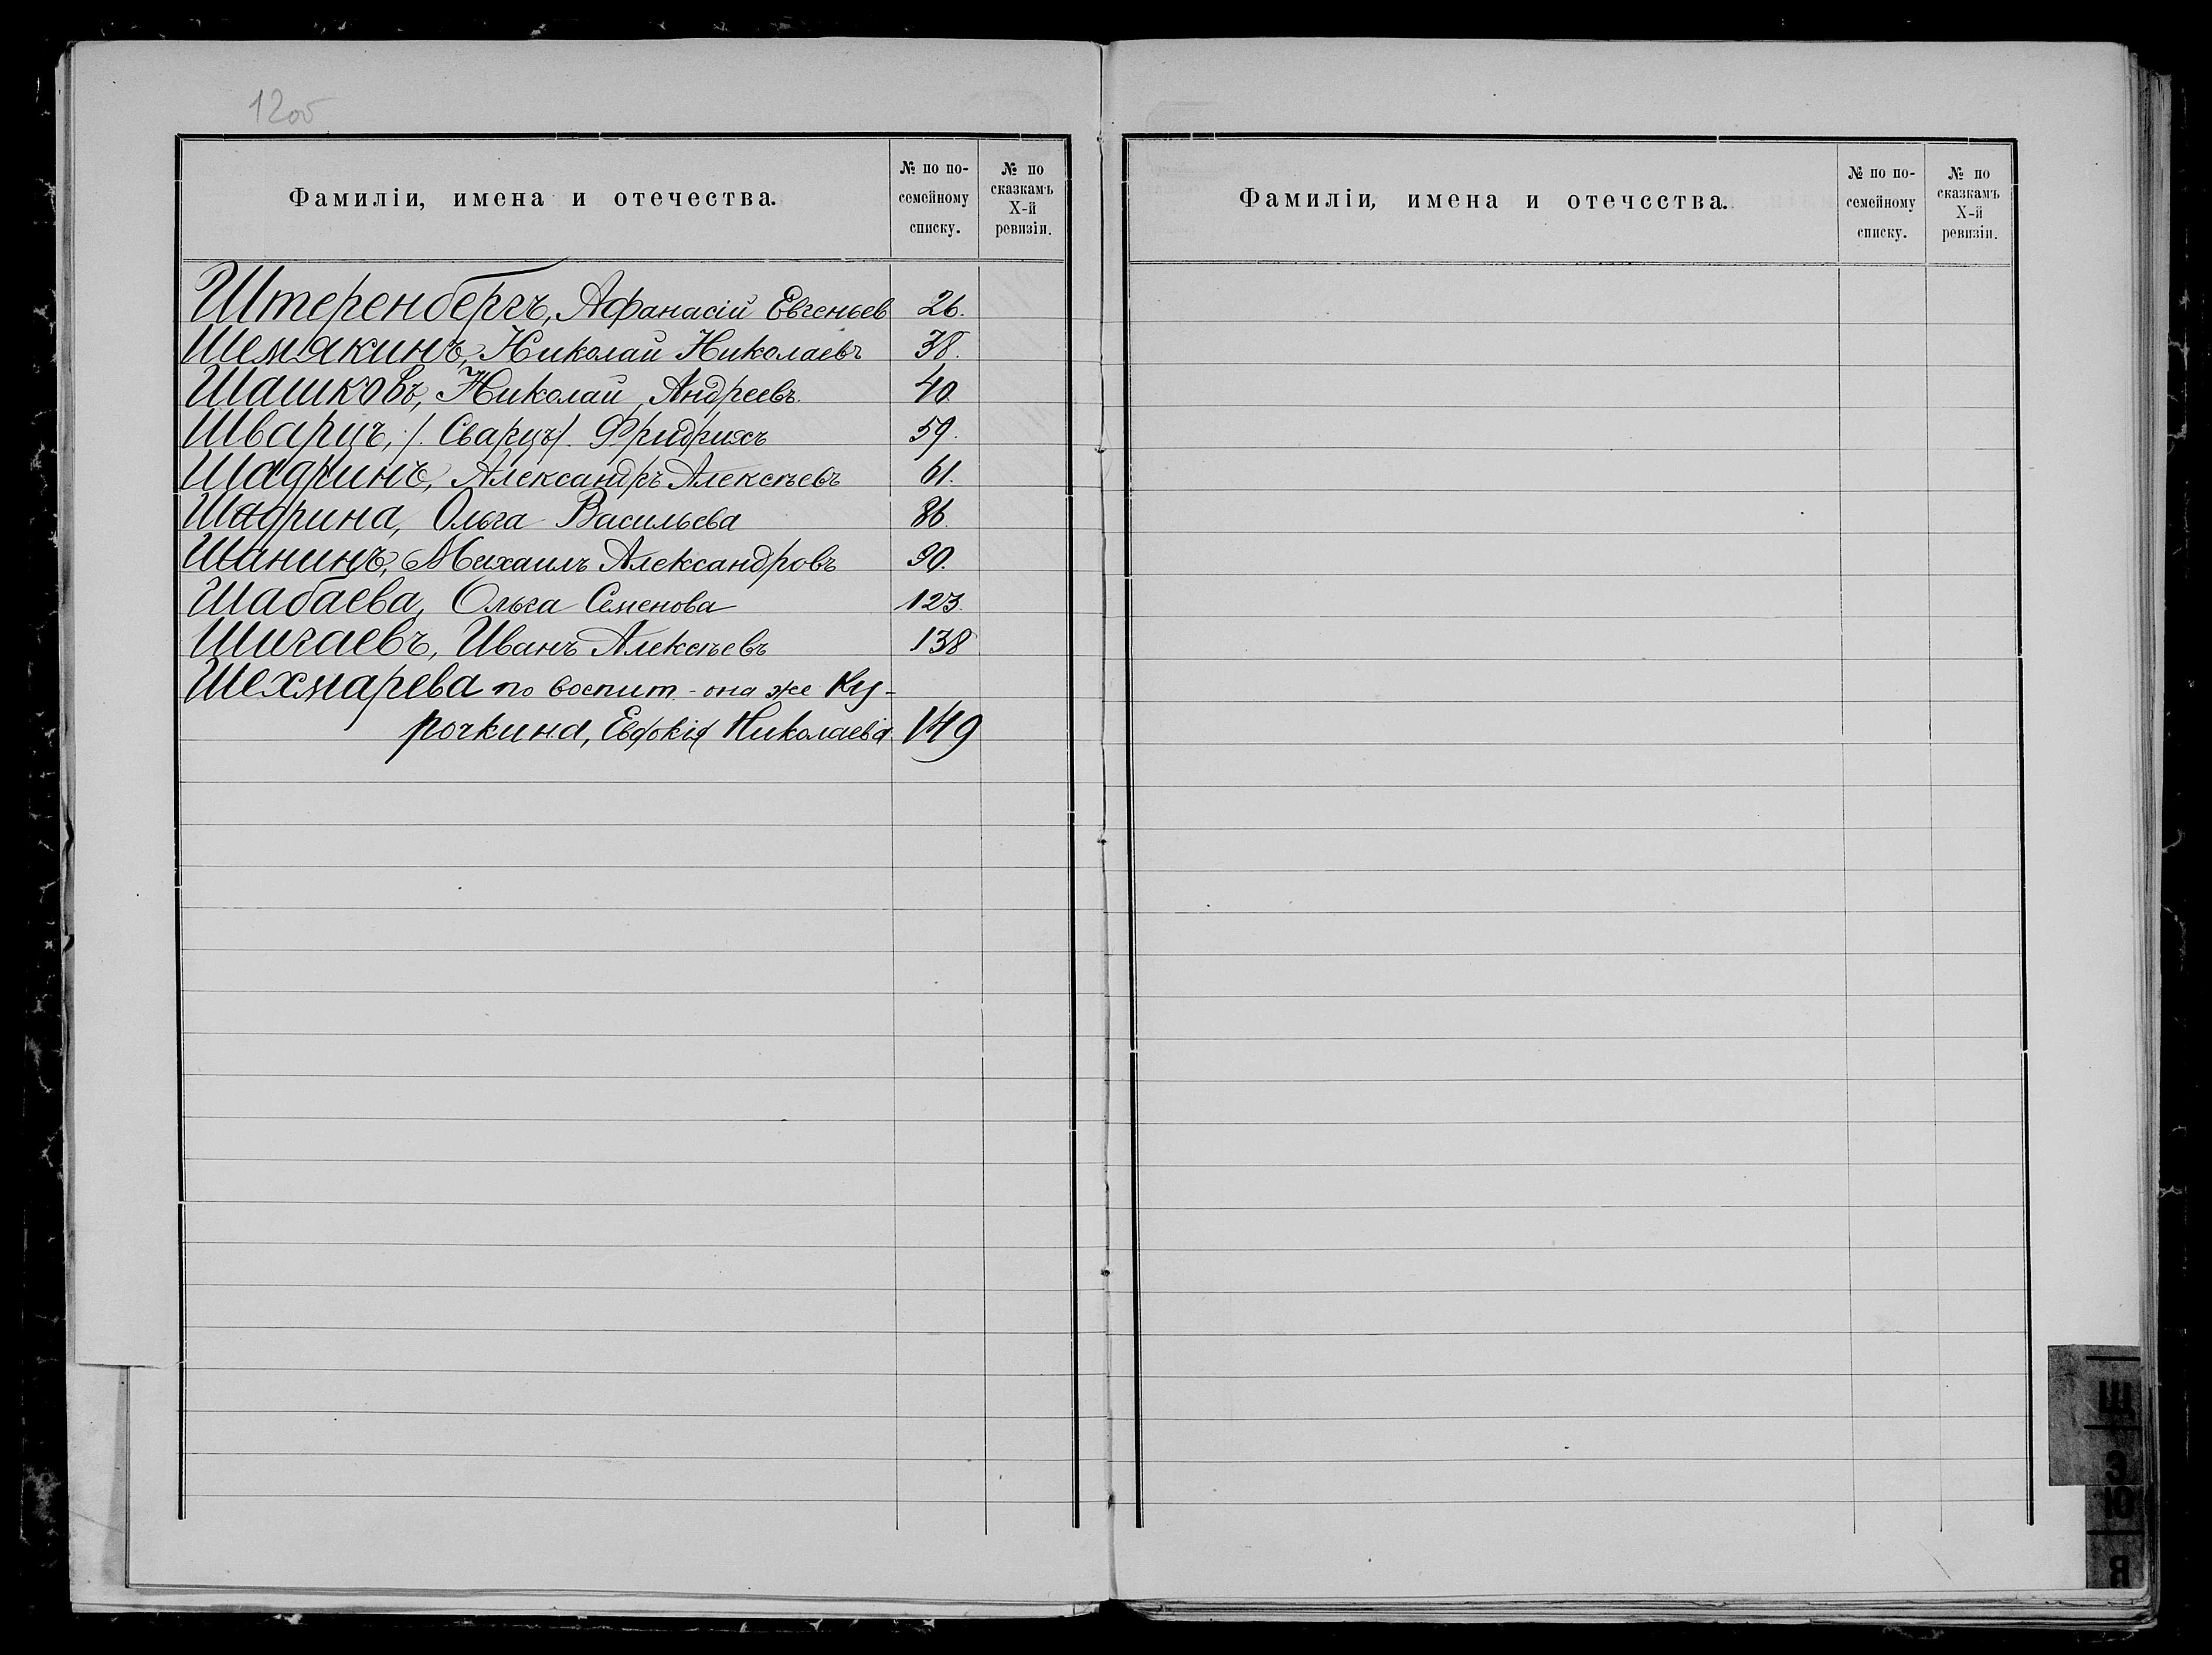 12об
Фамиліи, имена и отечества.
№ по по-
семейному
списку.
№ по
сказкамъ
X-й
ревизіи.
Штеренбергъ, Афанасій Евгеньев 26.
Шемякинъ, Николай Николаевъ 38.
Шашковъ, Николай Андреевъ. 40
Шварцъ, /. Сварцъ/. Фридрихъ 59.
Шадринъ, Александръ Алексѣевъ 61.
Шадрина, Ольга Васильева 86.
Шанинъ, Михаилъ Александровъ 90.
Шабаева, Ольга Семенова 123.
Шигаевъ, Иванъ Алексѣевъ 138
Шехмарева по воспит - она же Ку-
рочкина, Евдокія Николаева 149
Фамиліи, имена и отечества.
№ по по-
семейному
списку.
№ по
сказкамъ
X-й
ревизіи.
Щ
Э
Ю
Я